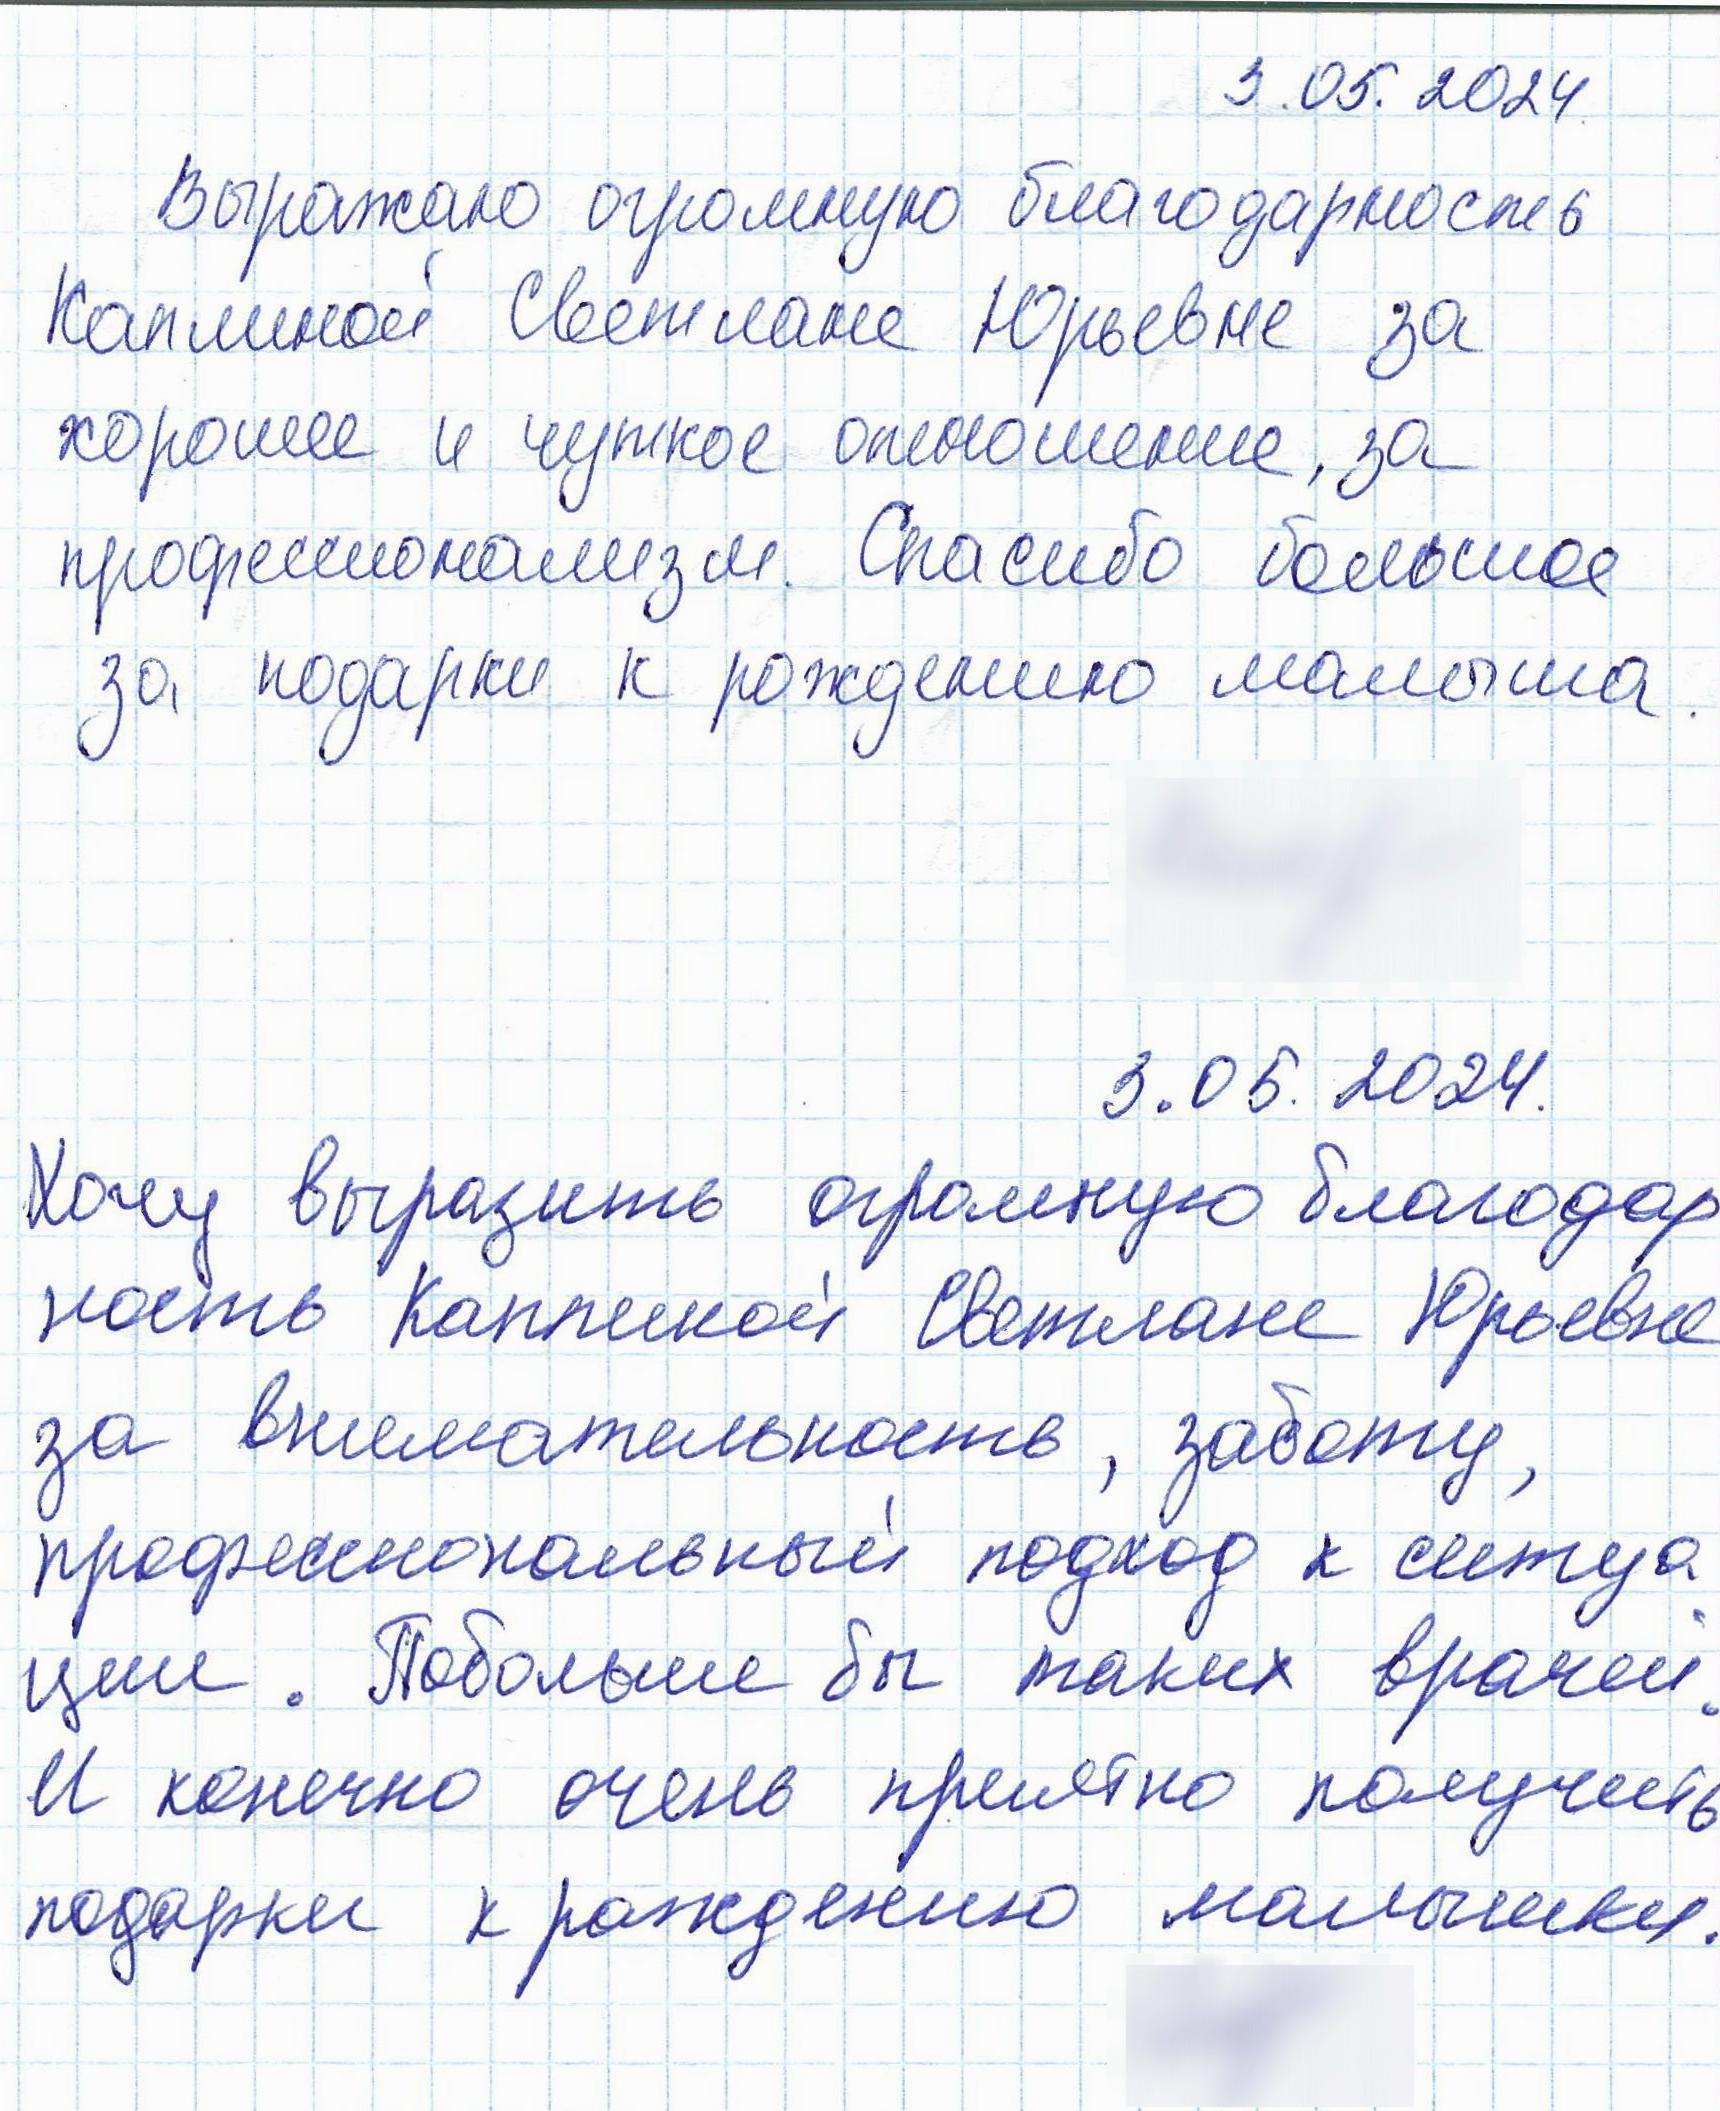 3.05.2024.
Выражаю огромную благодарность
Каплиной Светлане Юрьевне за
хорошее и чуткое отношение, за
профессионализм. Спасибо большое
за подарки к рождению малыша.
3.05.2024.
Хочу выразить огромную благодар
ность Каплиной Светлане Юрьевне
за внимательность, заботу,
профессиональный подход к ситуа
ции. Побольше бы таких врачей.
И конечно очень приятно получить
подарки к рождению малышки.